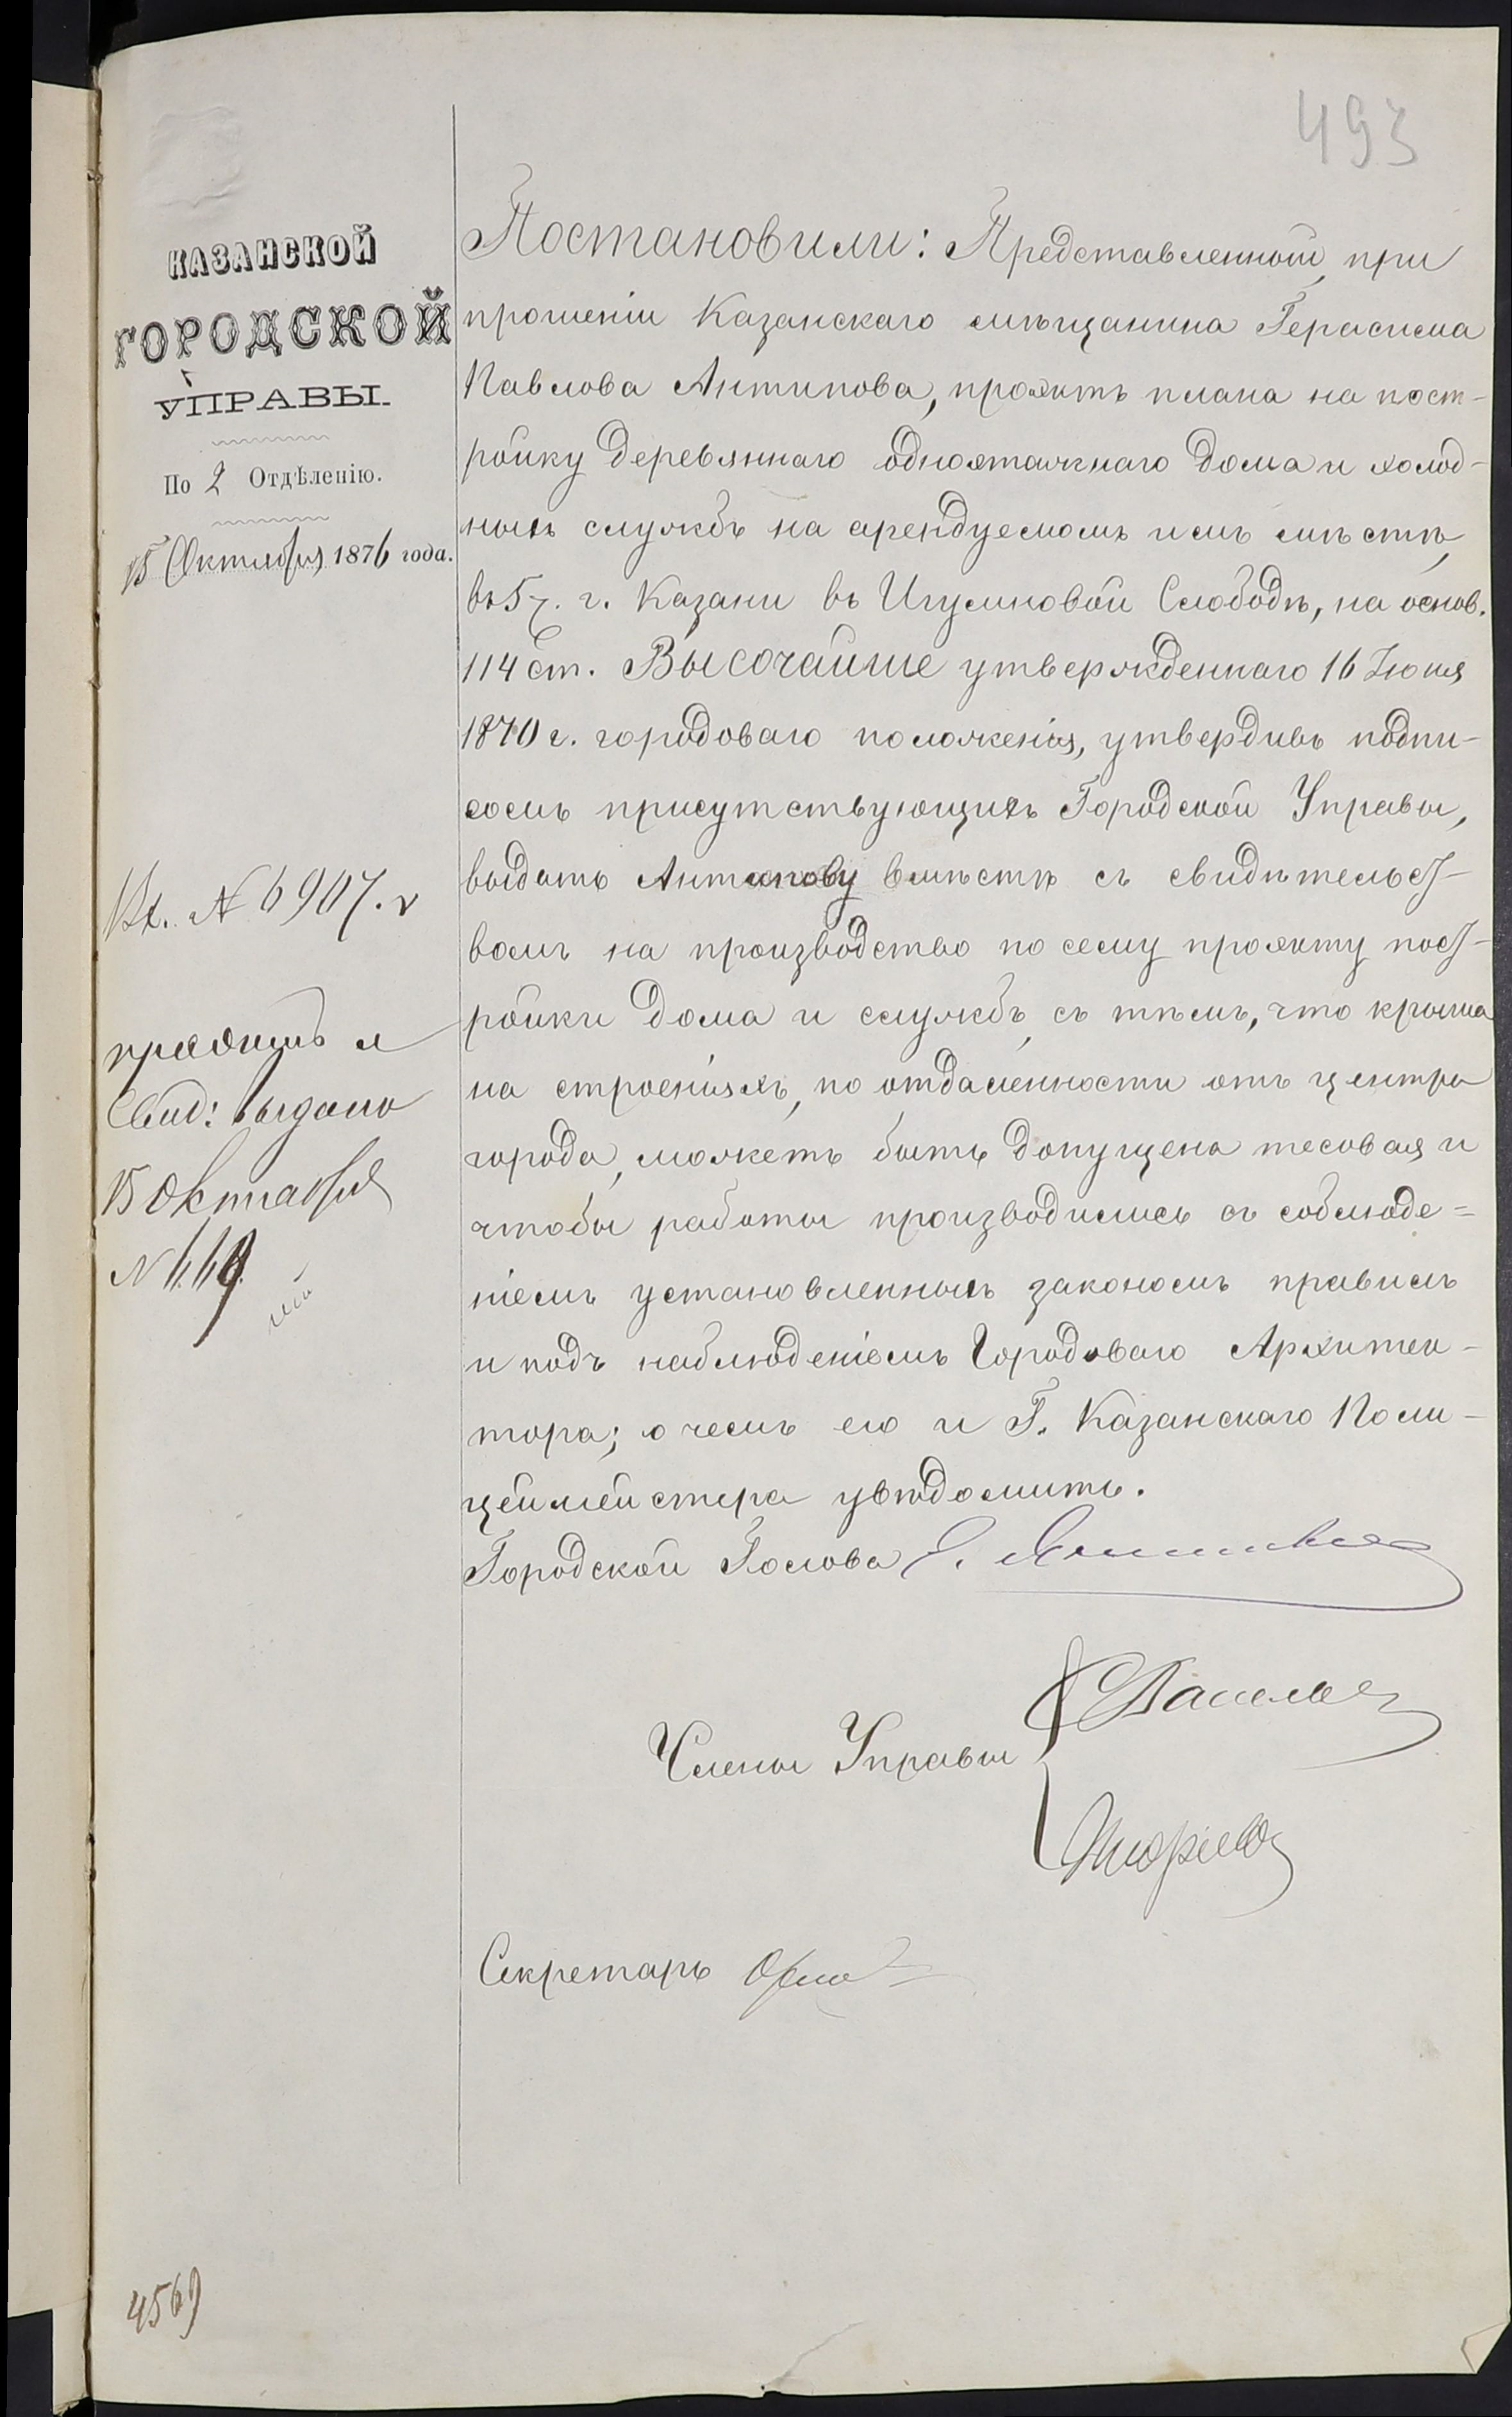 493
КАЗАНСКОЙ
ГОРОДСКОЙ
УПРАВЫ.
По 2 Отдѣленію.
15 Октября 1876 года.
Вх. № 6907. г
проэктъ и
Свид: выдано
15 Октября
№
4569
Постановили: Представленный при
прошеніи Казанскаго мѣщанина Герасима
Павлова Антипова, проэктъ плана на пост-
ройку деревяннаго одноэтажнаго дома и холод-
ныхъ службъ на арендуемомъ имъ мѣстѣ,
въ 5 ч. г. Казани въ Игумновой Слободѣ, на основ.
114 ст. Высочайше утвержденнаго 16 Іюня
1870 г. городоваго положенія, утвердивъ подпи-
сомъ присутствующихъ Городской Управы,
выдать Антипову вмѣстѣ съ свидѣтельст-
вомъ на производство по сему проэкту пост-
ройки дома и службъ, съ тѣмъ, что крыша
на строеніяхъ, по отдаленности отъ центра
города, можетъ быть допущена тесовая и
чтобы работы производились съ соблюде=
ніемъ установленныхъ закономъ правилъ
и подъ наблюденіемъ Городоваго Архитек-
тора; о чемъ его и Г. Казанскаго Поли-
цеймейстера увѣдомить.
Городской Голова Э. Янишевскій
Члены Управы
Секретарь